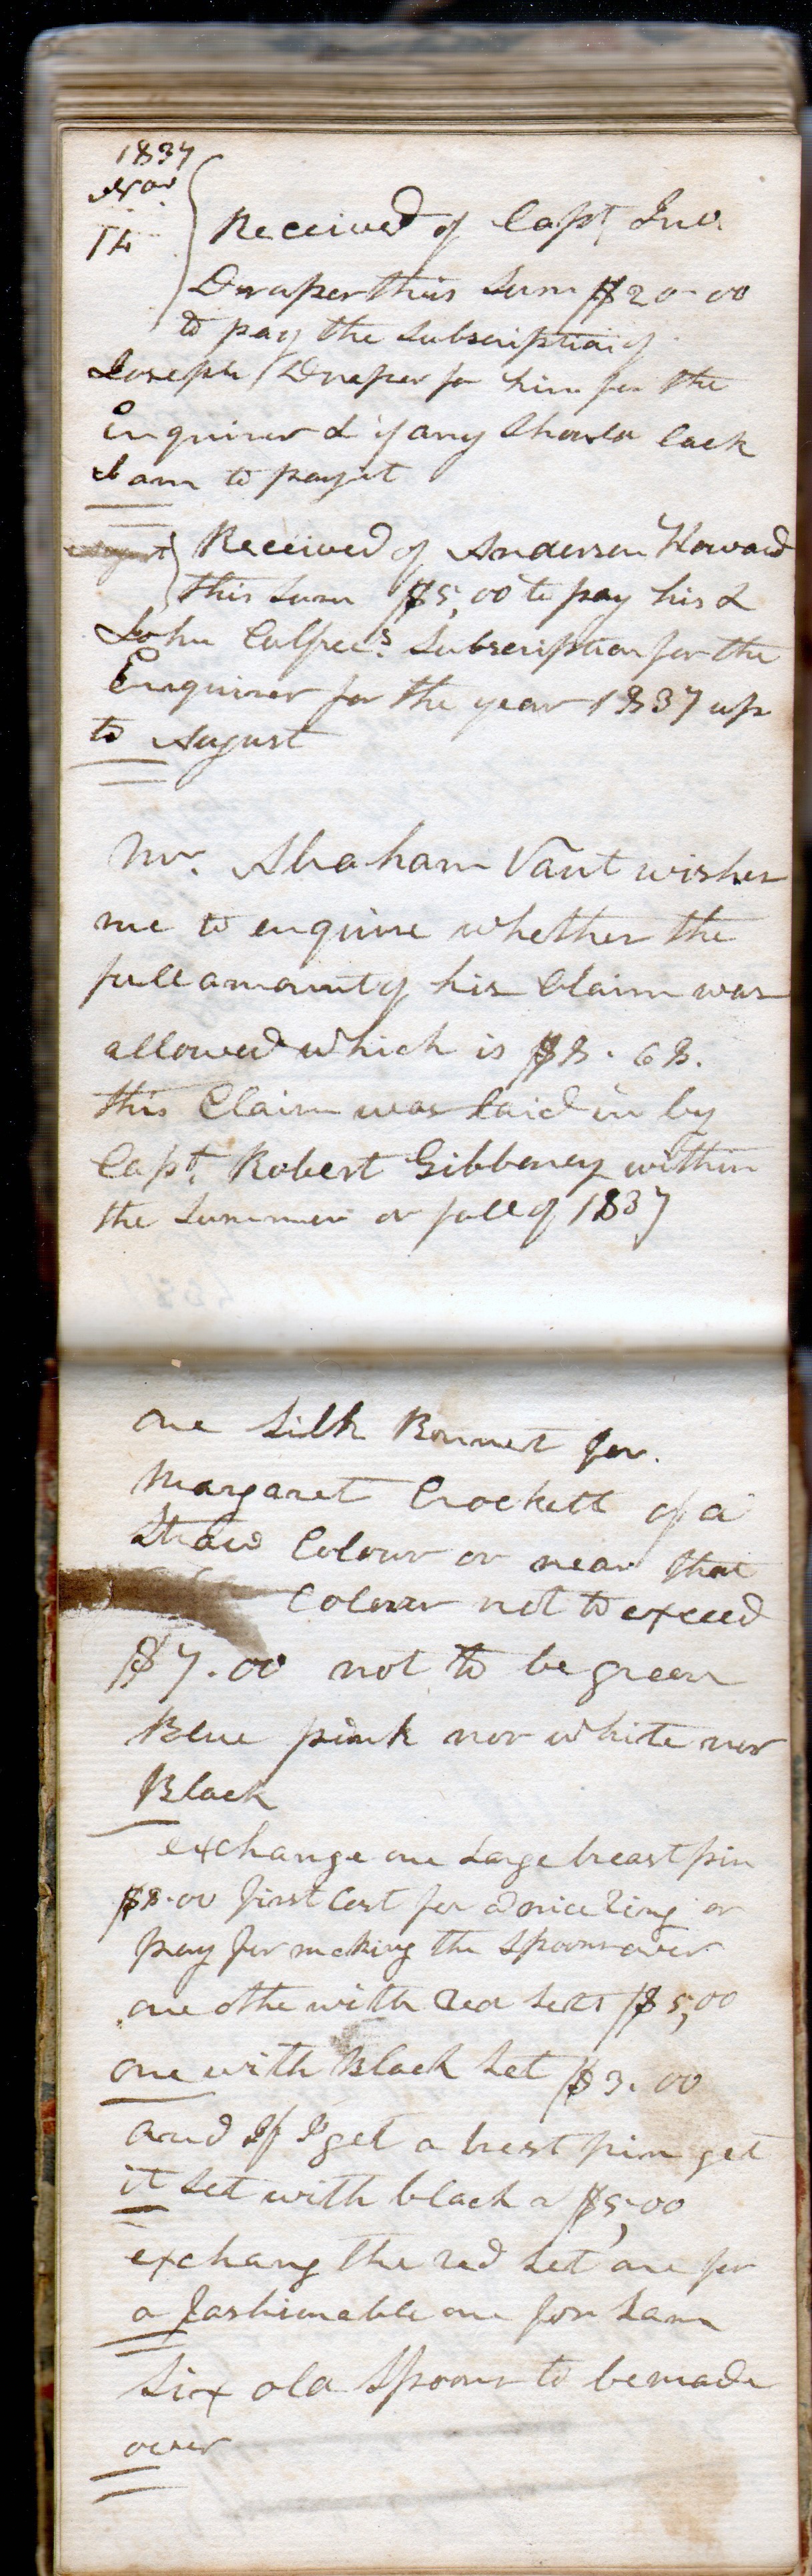 1837
Nov
14
Received of Capt Jno.
Draper this Sum $20-00
to pay the Subscription of
Joseph Draper for him for the
Enquirer & if any Should lack
I am to pay it
Received of Anderson Howard
this Sum $5,00 to pay his &
John Subscription for the
Enquirer for the year 1837 up
to August
Mr. Abraham Vaut wishes
me to enquire whether the
full amount of his Claim was
allowed which is $8.68.
this Claim was laid in by
Capt. Robert Gibboney within
the Summer or fall of 1837
one Silk Bonnet for.
Margaret Crockett of a
Straw Colour or near that
Colour not to exceed
$7.00 not to be green
Blue pink nor white nor
Black
exchange one Large breast pin
$8.00 first Cost for a nice Ring or
pay for making the Spoons over
one othe with Red Sets $5,00
one with Black Set $3.00
and If I get a brest pin get
it Set with black a $5,00
exchang the red Set one for
a fashionable one for Sam
Six old Spoons to be made
over